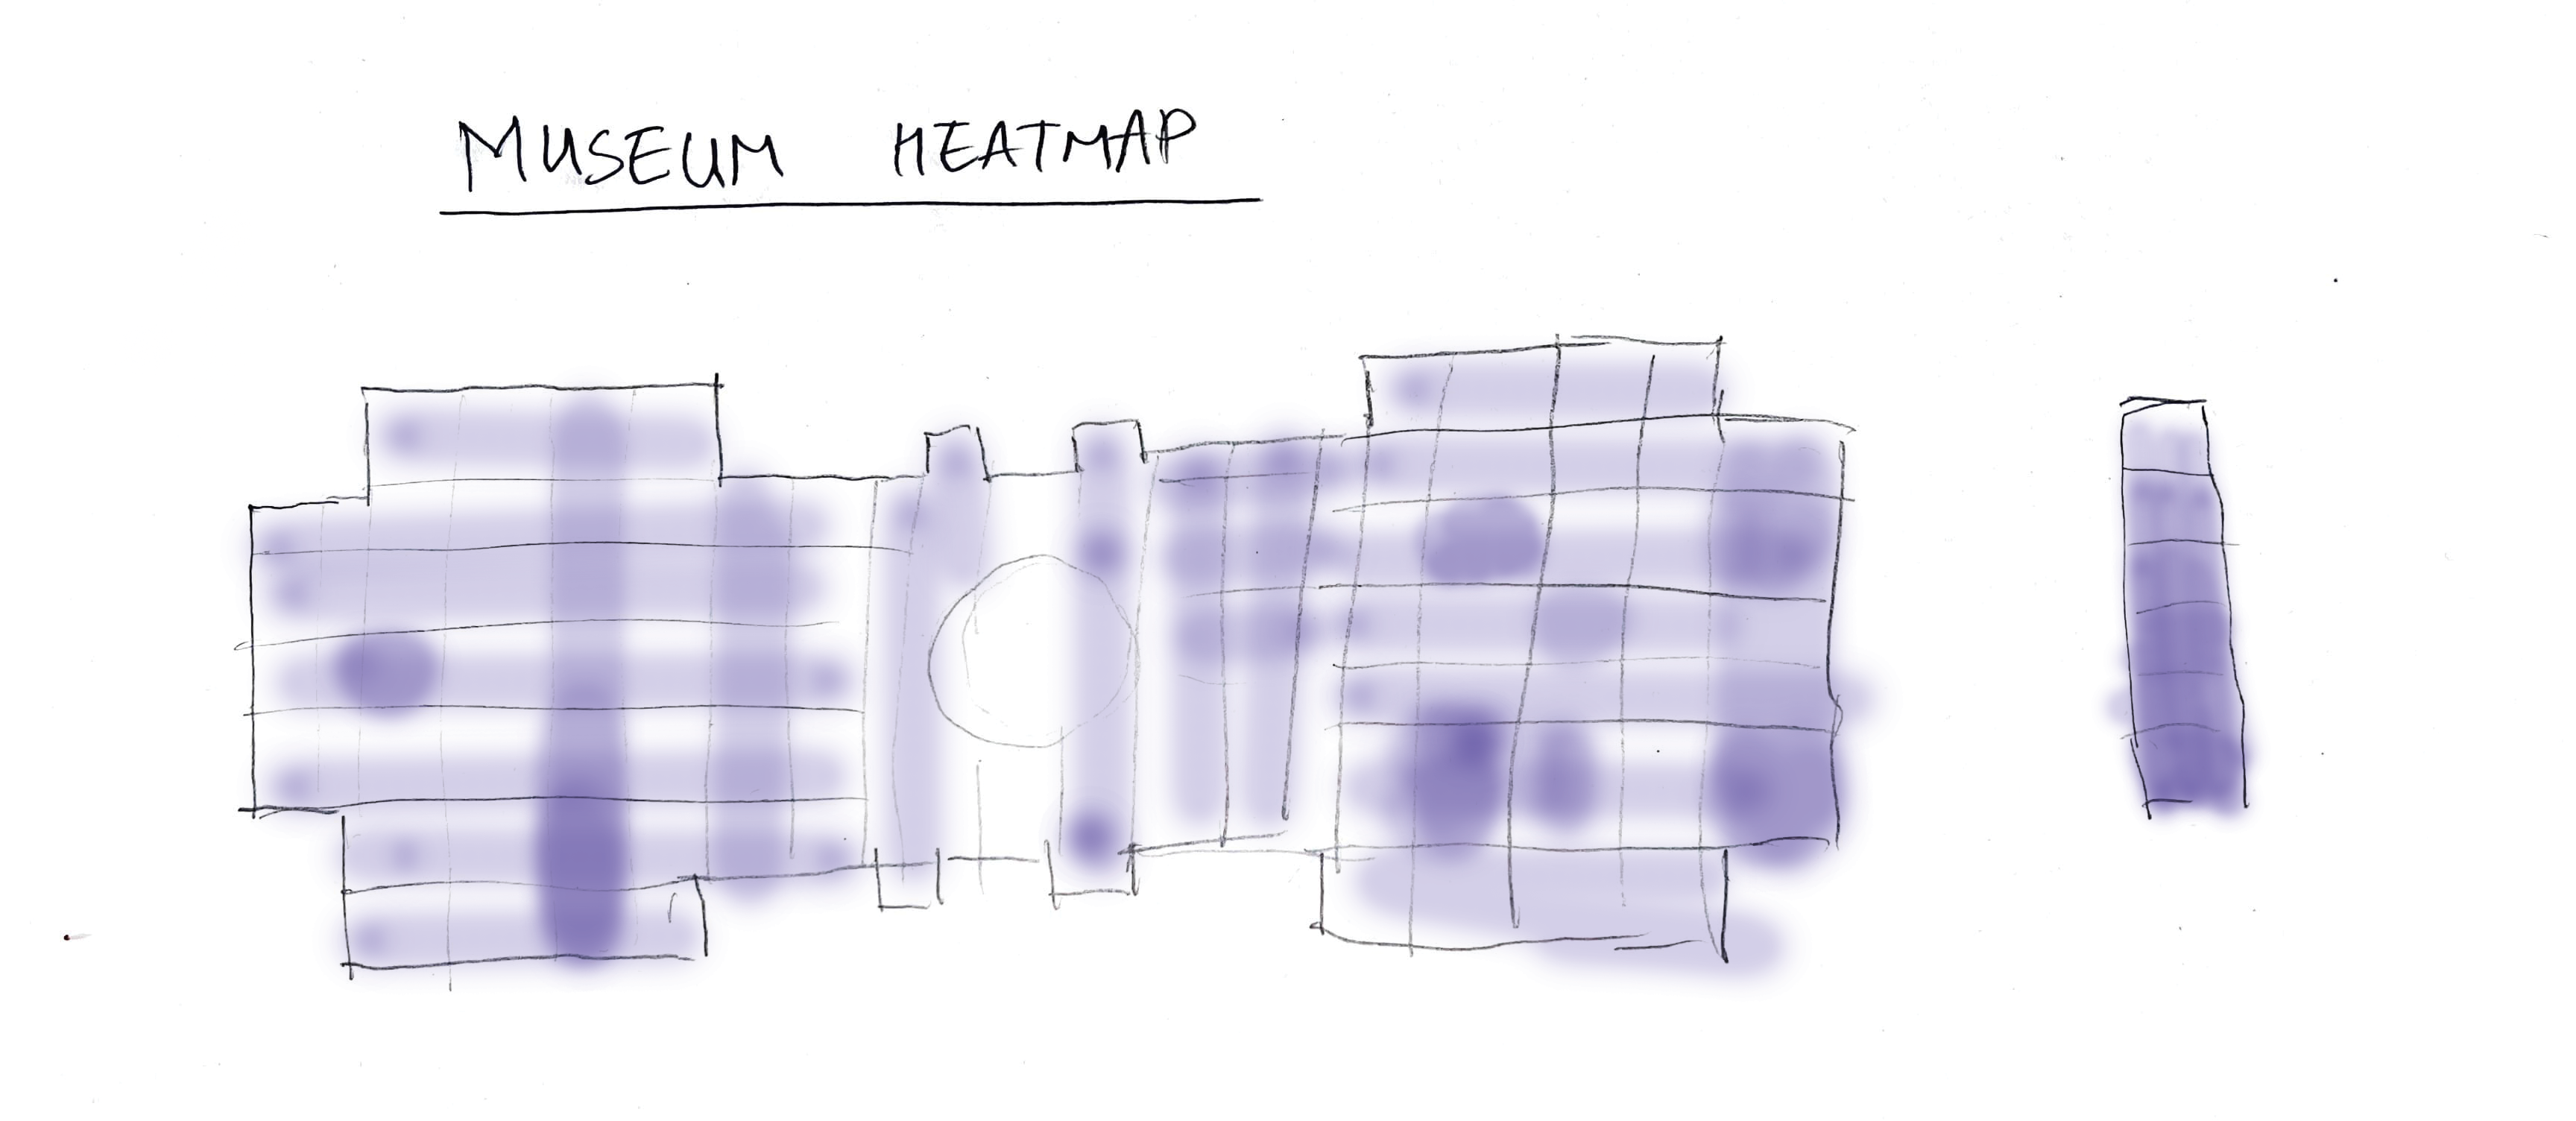 MUSEUM HEATMAP